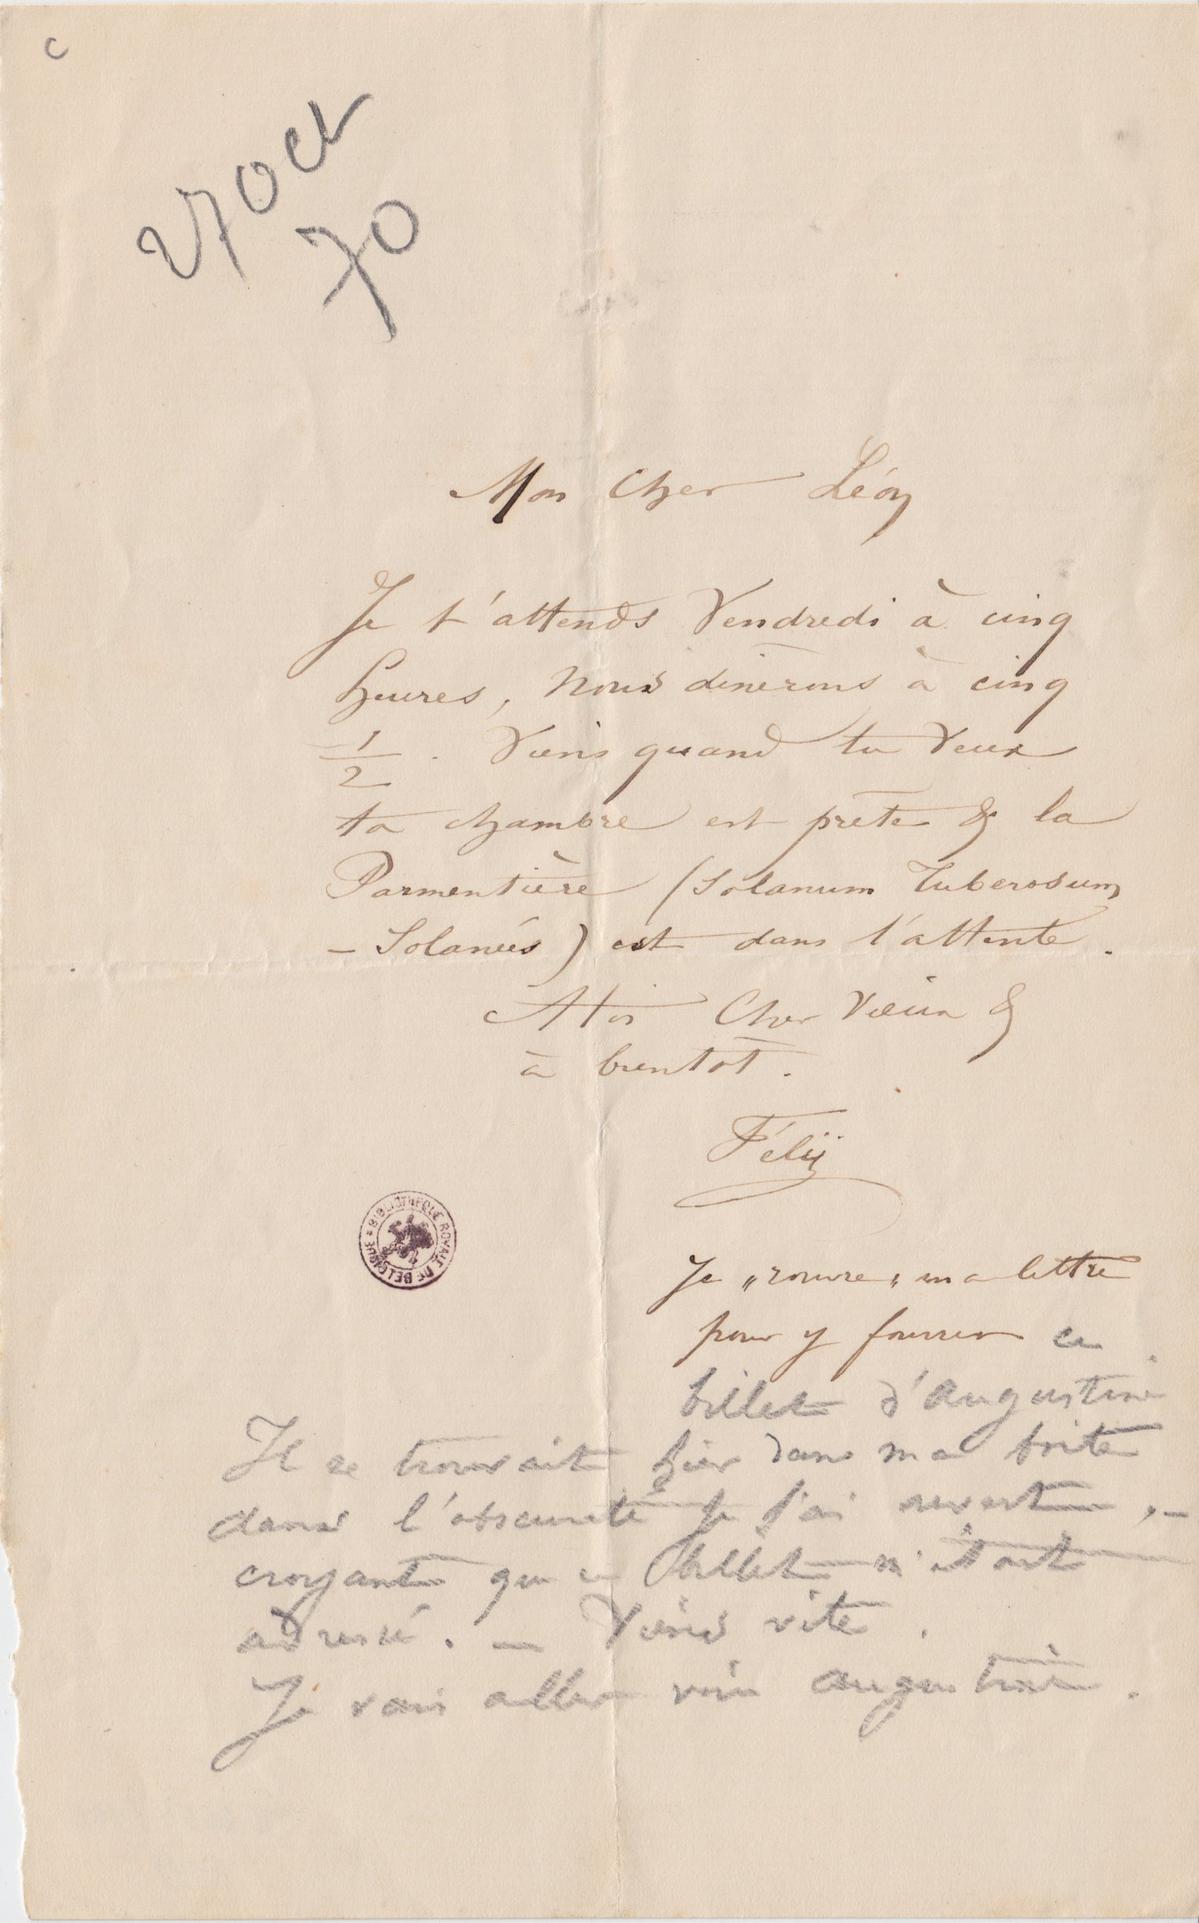 C
27 Oct
70
Mon Cher Léon
Je t'attends Vendredi à cinq
heures, Nous dinèrons à cinq
1/2 . Viens quand tu Veux
ta chambre est prête & la
Parmentière (Solanum Tuberosum
– Solanées) est dans l'attente .
A toi Cher Vieux &
à bientôt .
Félix
BIBLIOTHÈQUE ROYALE DE BELGIQUE
Je „rouvre„ ma lettre
pour y fourrer ce
billet d'Augustine
Il se trouvait hier dans ma boite
dans l'obscurité je l'ai ouvert , –
croyant que ce billet m'était
adressé . — Viens vite .
Je vais aller voir augustine .